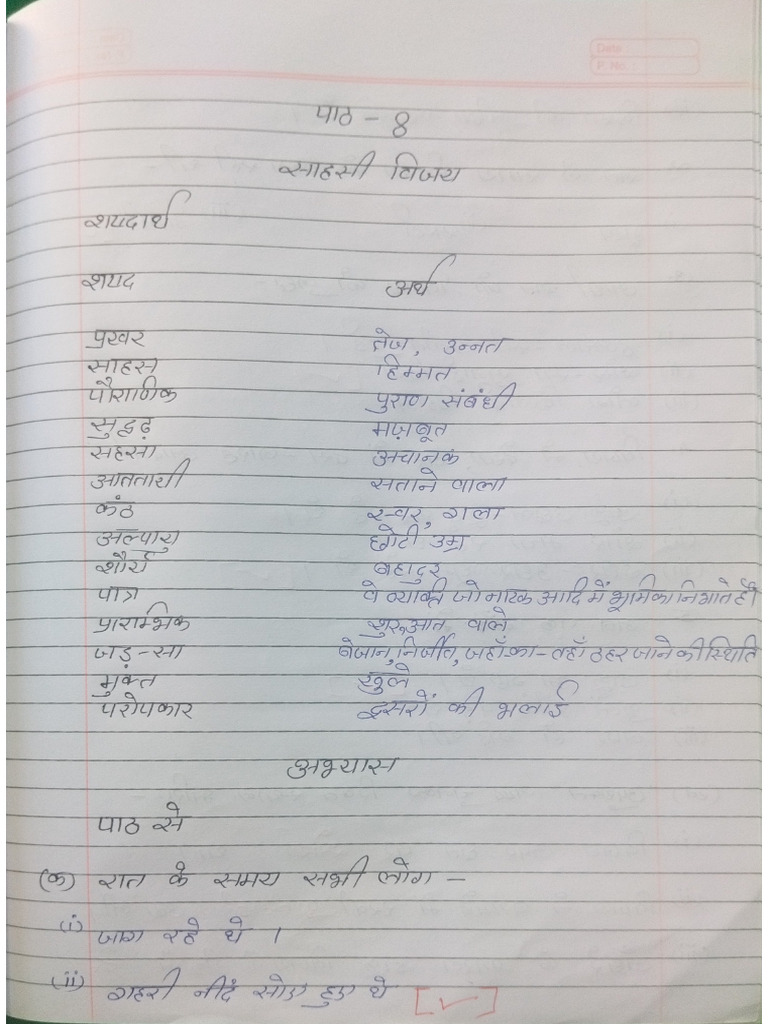 Date
P. No.
पाठ - 8
साहसी विजय
शब्दार्थ
शब्द अर्थ
प्रखर तेज, उन्नत
साहस हिम्मत
पौराणिक पुराण संबंधी
सुदृढ़ मज़बूत
सहसा अचानक
आततायी सताने वाला
कंठ स्वर, गला
अल्पायु छोटी उम्र
शौर्य बहादुर
पात्र वे व्यक्ति जो नाटक आदि में भूमिका निभाते हैं
प्रारम्भिक शुरुआत वाले
जड़-सा बेजान, निर्जीव, जहाँ-का-तहाँ ठहर जाने की स्थिति
मुक्त खुले
परोपकार दूसरों की भलाई
अभ्यास
पाठ से
(क) रात के समय सभी लोग -
(i) जाग रहे थे ।
(ii) गहरी नींद सोए हुए थे [✓]